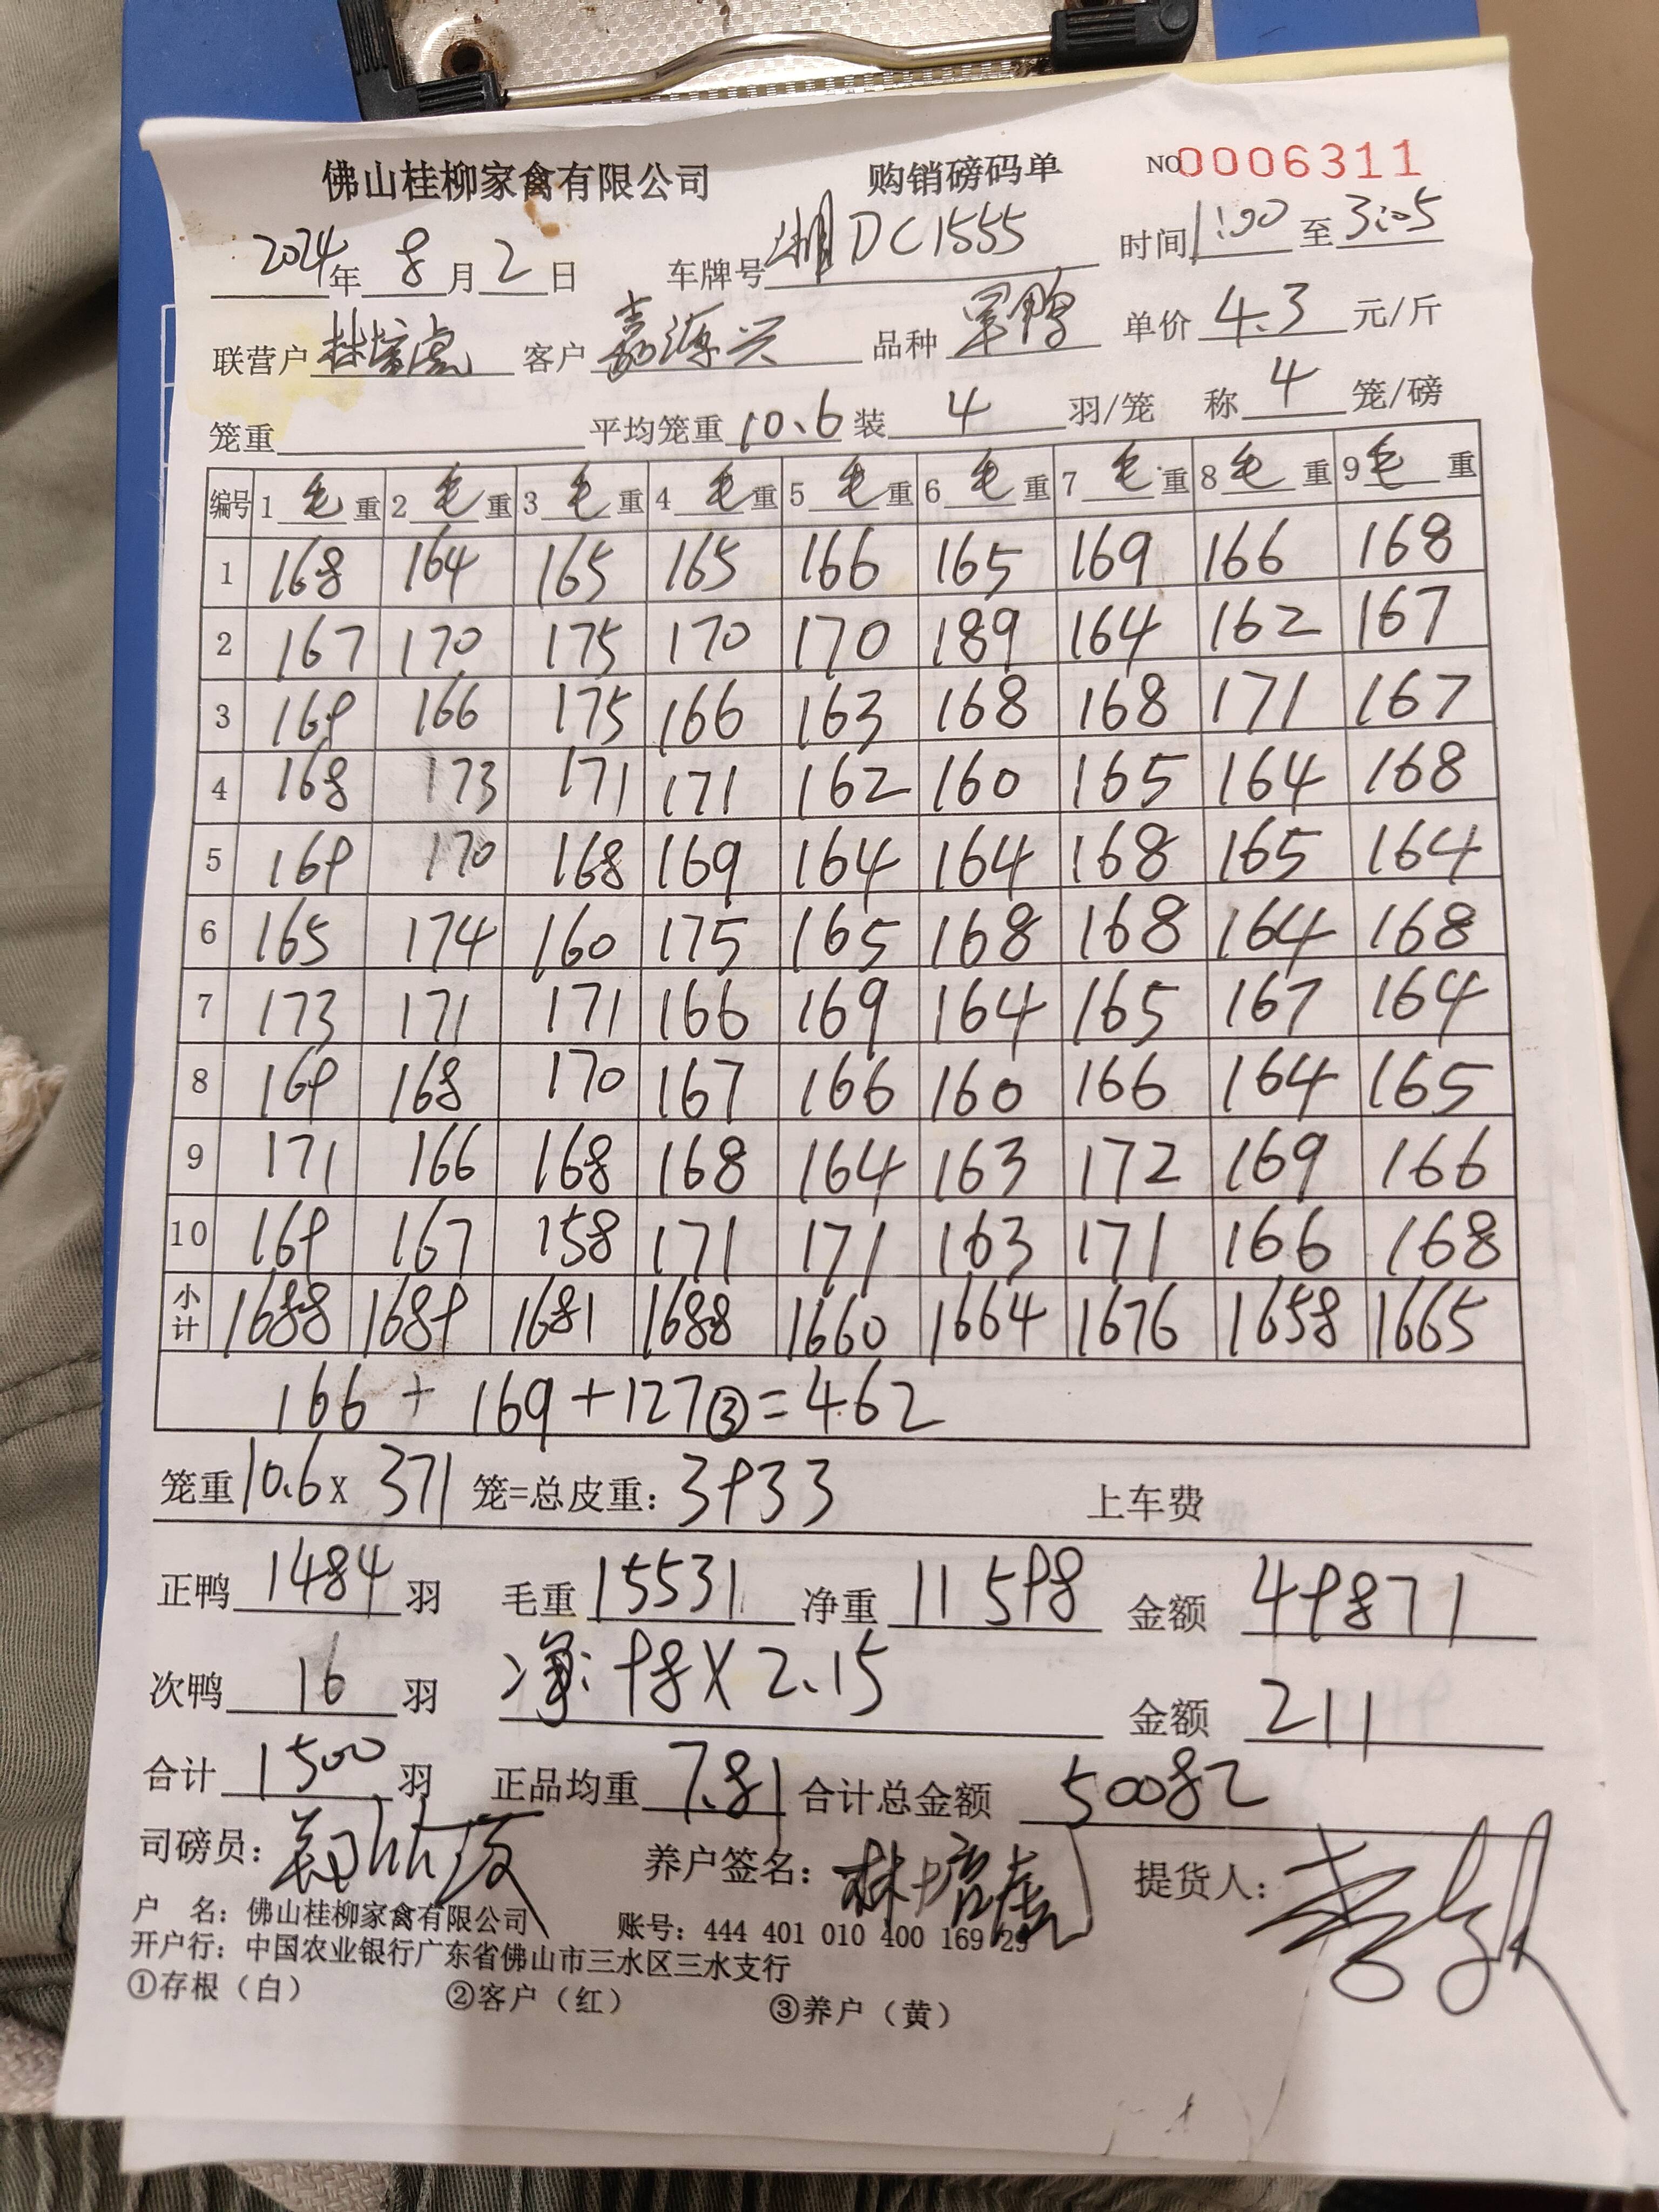 佛山桂柳家禽有限公司 购销磅码单 NO0006311
2024年 8 月 2 日 车牌号 湘DC1555 时间 1:00 至 3:05
联营户 林培 客户 嘉源兴 品种 军鸭 单价 4.3 元/斤
笼重 平均笼重 10.6 装 4 羽/笼 称 4 笼/磅
编号 1 毛 重 2 毛 重 3 毛 重 4 毛 重 5 毛 重 6 毛 重 7 毛 重 8 毛 重 9 毛 重
1 168 164 165 165 166 165 169 166 168
2 167 170 175 170 170 189 164 162 167
3 169 166 175 166 163 168 168 171 167
4 168 173 171 171 162 160 165 164 168
5 169 170 168 169 164 164 168 165 164
6 165 174 160 175 165 168 168 164 168
7 173 171 171 166 169 164 165 167 164
8 169 168 170 167 166 160 166 164 165
9 171 166 168 168 164 163 172 169 166
10 169 167 158 171 171 163 171 166 168
小计 1688 1689 1681 1688 1660 1664 1676 1658 1665
166 + 169 + 127③ = 462
笼重 10.6 x 371 笼=总皮重: 3933 上车费
正鸭 1484 羽 毛重 15531 净重 11598 金额 49871
次鸭 16 羽 净: 98 X 2.15 金额 211
合计 1500 羽 正品均重 7.81 合计总金额 50082
司磅员: 养户签名: 林培 提货人:
户 名: 佛山桂柳家禽有限公司 账号: 444 401 010 400 169 29
开户行: 中国农业银行广东省佛山市三水区三水支行
①存根（白） ②客户（红） ③养户（黄）